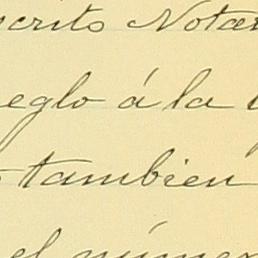 crito Notar
eglo á la
también
el númer